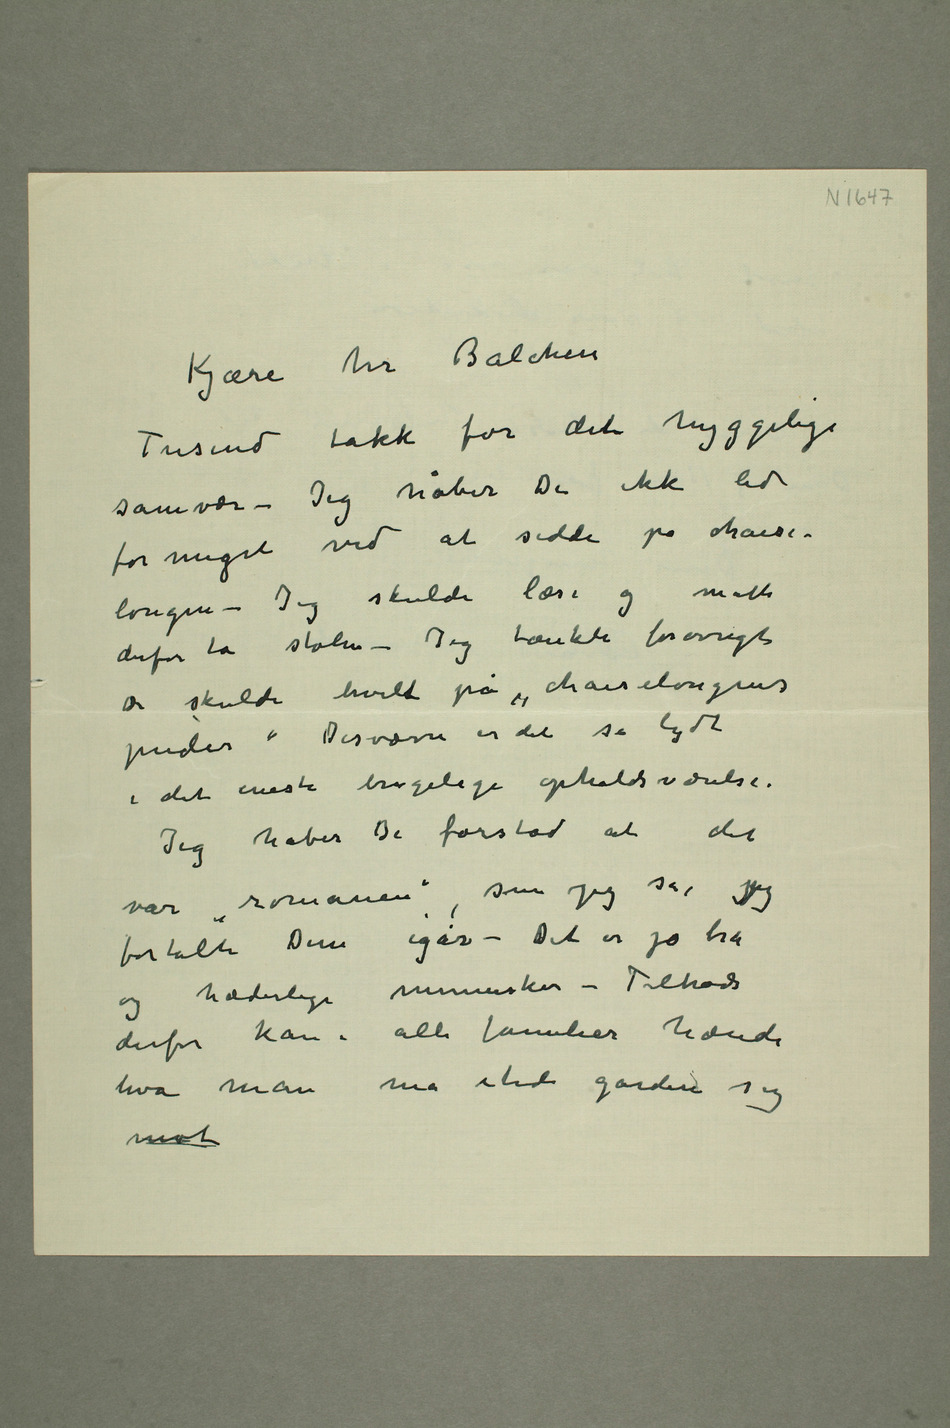 N 1647
Kjære hr Balchen
Tusind takk for det hyggelige
samvær – Jeg håber De ikk led
for meget ved at sidde på chaise-
longen – Jeg skulde læse og måtte
derfor ta stolen – Jeg tænkte forøvrigt
De skulde hvilt på „chaiselongens
puder“ Desværre er det så lydt
i det eneste brugelige opholdsværelse.
Jeg håber De forstod at det
var „romanen“, som jeg sa, jeg
fortalte Dem igår – Det er jo bra
og hæderlige mennesker – Tiltrods
derfor kan i alle familier hænde
hva man må istede gardere sig
mot